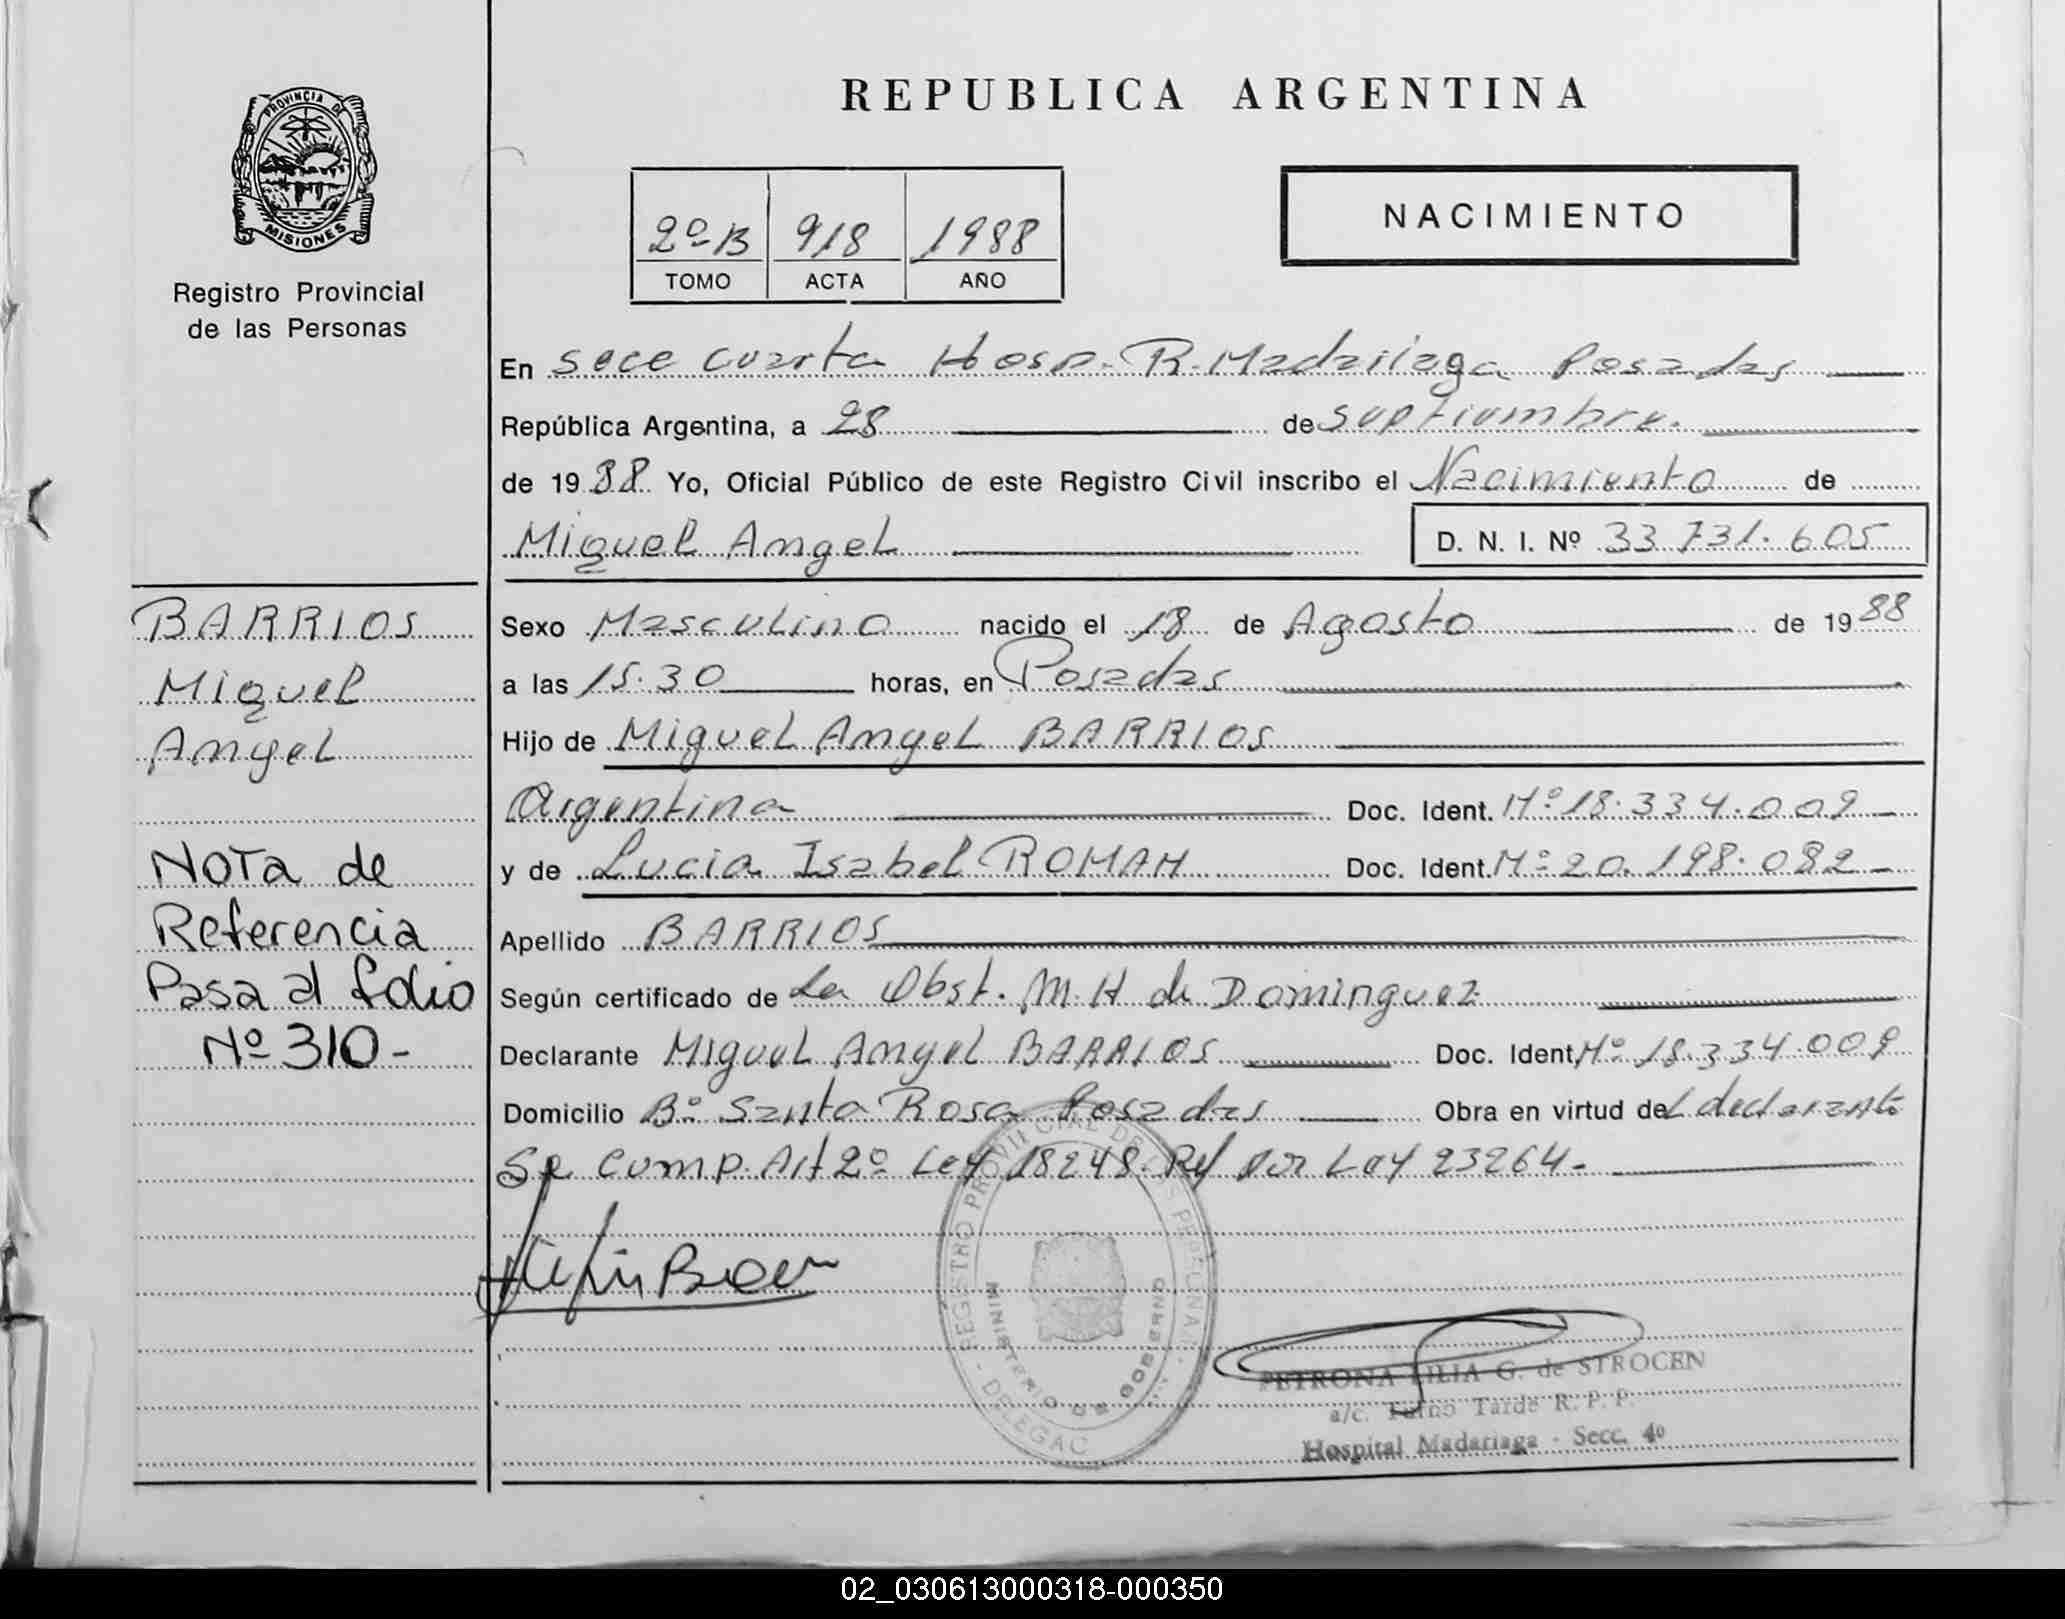 PROVINCIA DE
MISIONES
Registro Provincial
de las Personas
REPUBLICA ARGENTINA
2º B 918 1988
TOMO ACTA AÑO
NACIMIENTO
En Secc cuarta Hosp. R. Madariaga Posadas
República Argentina, a 28 de septiembre.
de 1988 Yo, Oficial Público de este Registro Civil inscribo el Nacimiento de
Miguel Angel D. N. I. Nº 33.731.605
Sexo Masculino nacido el 18 de Agosto de 1988
a las 15.30 horas, en Posadas
Hijo de Miguel Angel BARRIOS
Argentina Doc. Ident. Nº 18.334.009
y de Lucia Isabel ROMAN Doc. Ident. Nº 20.198.082
Apellido BARRIOS
Según certificado de La Obst. M. H de Dominguez
Declarante Miguel Angel BARRIOS Doc. Ident Nº 18.334.009
Domicilio Bº Santa Rosa Posadas Obra en virtud del declarante
Se cump. Art 2º Ley 18248. Ref por Ley 23264.
BARRIOS
Miguel
Angel
Nota de
Referencia
Pasa al folio
Nº 310-
REGISTRO PROVINCIAL DE LAS PERSONAS
MINISTERIO DE GOBIERNO
DELEGAC
PETRONA LILIA G. de STROCEN
a/c. Turno Tarde R. P. P.
Hospital Madariaga - Secc. 4º
02_030613000318-000350